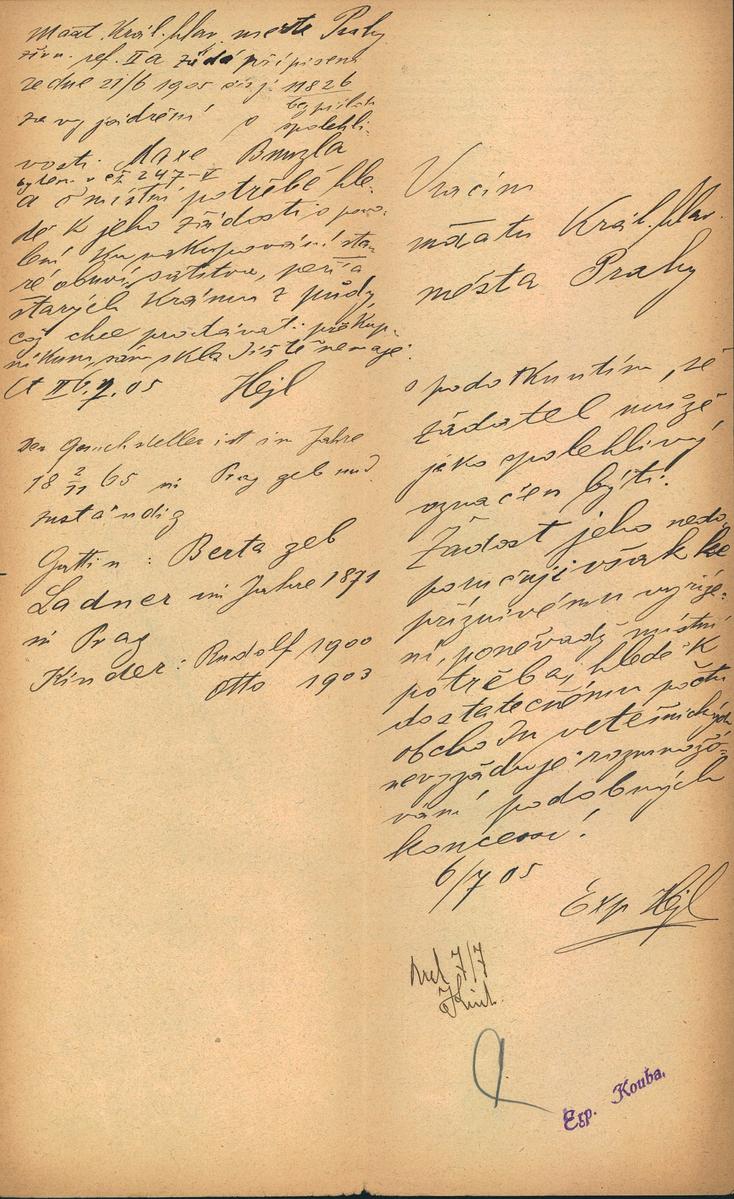 Máát. Král. hlav. města Prahy
živn. ref. II a žádá přípisem
ze dne 21/6 1905 čís j: 11826
za vyjádření o
bez příloh
spolehli-
vosti Maxe Bruzla
bytem v čp. 247-V
a o místní potřebě hle-
dě k jeho žádosti o povo-
lení ku nakupování sta-
ré obuvi, šatstva, peří a
starých krámů z půdy,
což chce prodávati překup-
níkům, sám skladiště nemaje.
Ct II 1/7. 05 Hejl
Der Gesuchsteller ist im Jahre
18 2/11 65 in Prag geb und
zuständig
Gattin : Berta geb
Ladner im Jahre 1871
in Prag
Kinder : Rudolf 1900
Otto 1903
Vracím
máátu Král. hlav.
města Prahy
s podotknutím, že
žadatel může
jako spolehlivý
označen býti.
Žádost jeho nedo
poručuji však ke
příznivému vyříze-
ní, poněvadž místní
potřeba, hledě k
dostatečnému počtu
obchodu vetešnických
nevyžaduje rozmnožo-
vání podobných
koncessí!
6/7 05
Exp Hejl
7/7
Exp. Kouba.